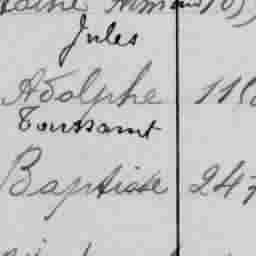 Jules
Adolphe 11
Toussaint
Baptiste 247